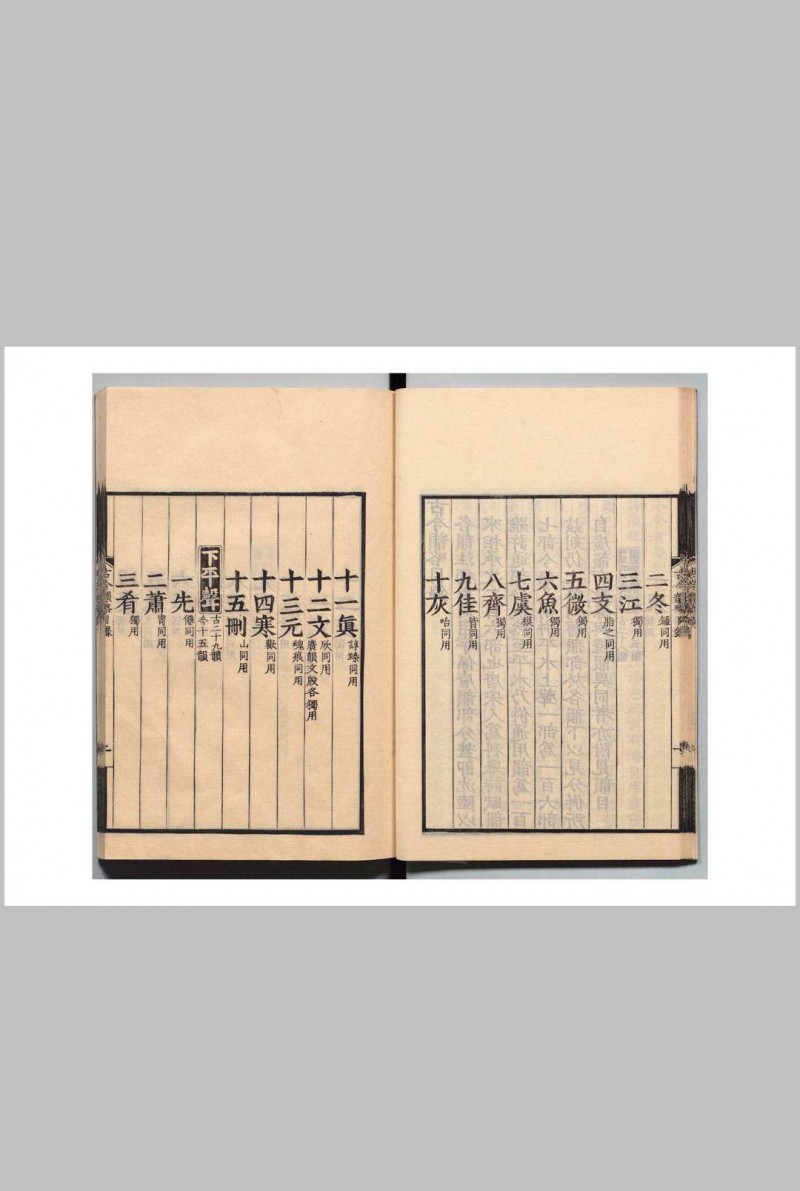 二冬鍾同用
三江獨用
四支脂之同用
五微獨用
六魚獨用
七虞模同用
八齊獨用
九佳皆同用
十灰咍同用
十一眞諄臻同用
十二文欣同用
廣韻文殷各獨用
十三元魂痕同用
十四寒歡同用
十五刪山同用
下平聲古二十九韻
今十五韻
一先僊同用
二蕭宵同用
三肴獨用